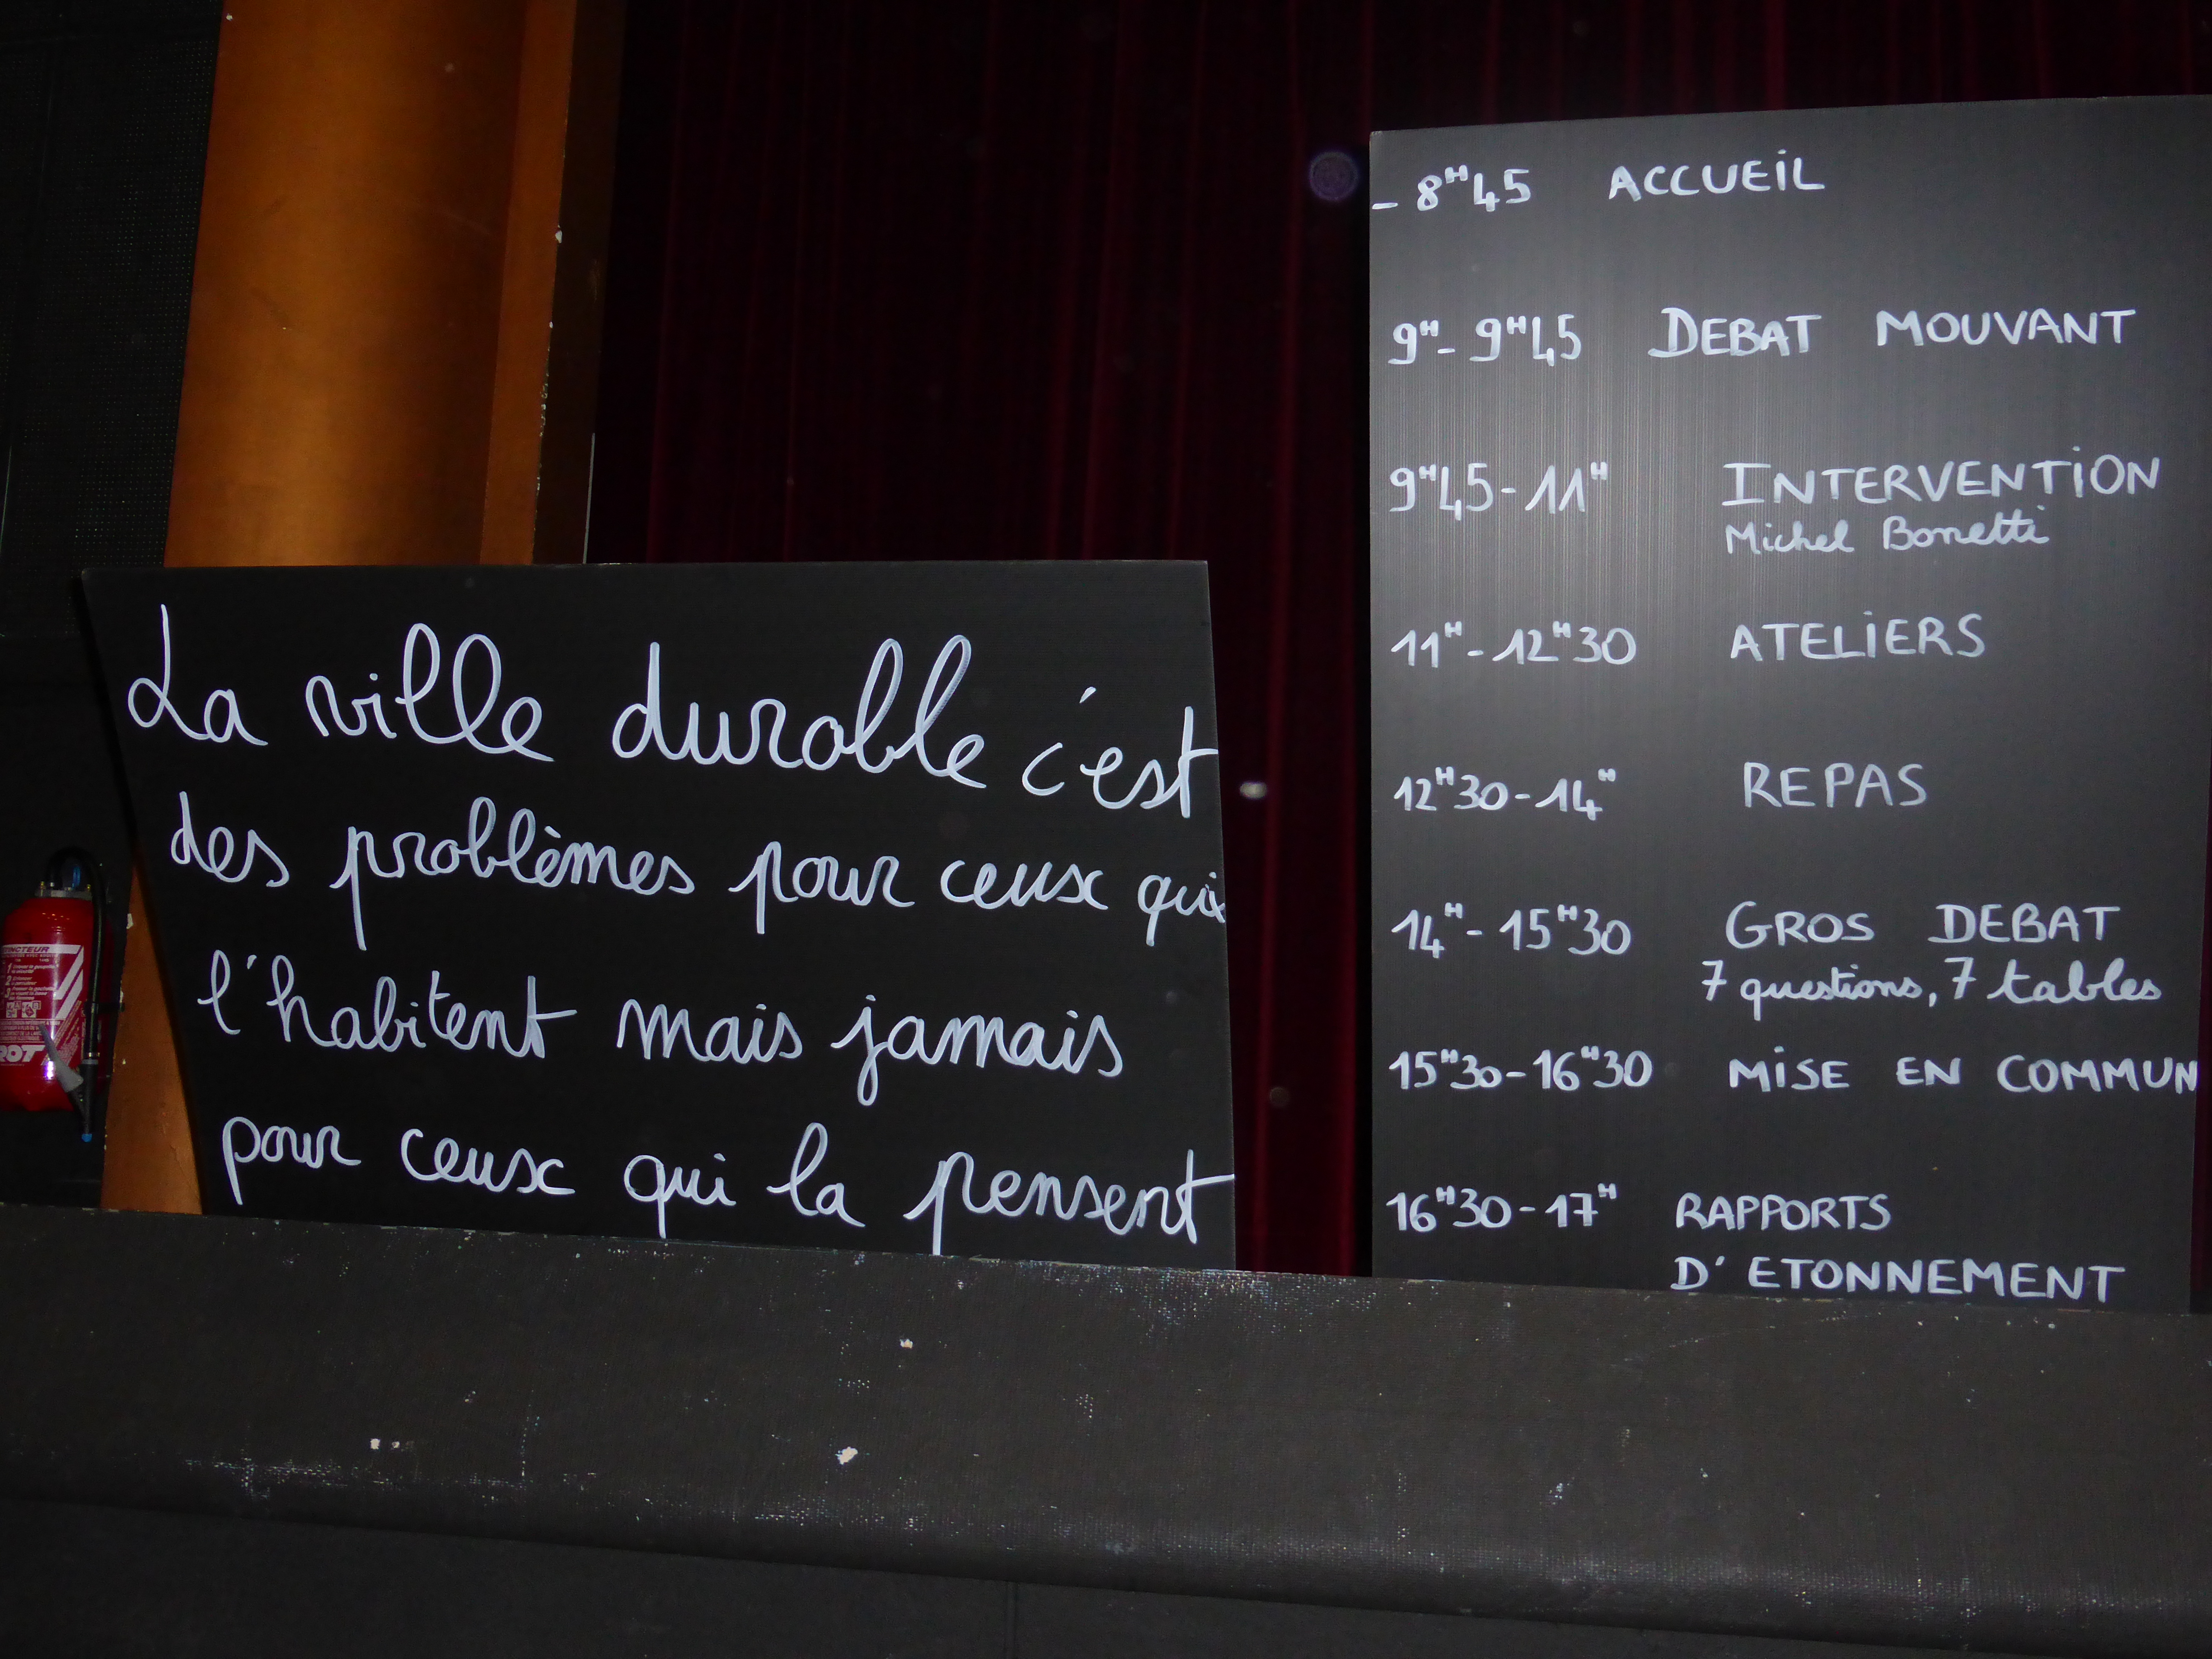 La ville durable c'est
des problèmes pour ceux qui
l'habitent mais jamais
pour ceux qui la pensent
- 8H45 ACCUEIL
9H- 9H45 DEBAT MOUVANT
9H45-11H INTERVENTION
Michel Bonetti
11H-12H30 ATELIERS
12H30-14H REPAS
14H-15H30 GROS DEBAT
7 questions, 7 tables
15H30-16H30 MISE EN COMMUN
16H30-17H RAPPORTS
D'ETONNEMENT